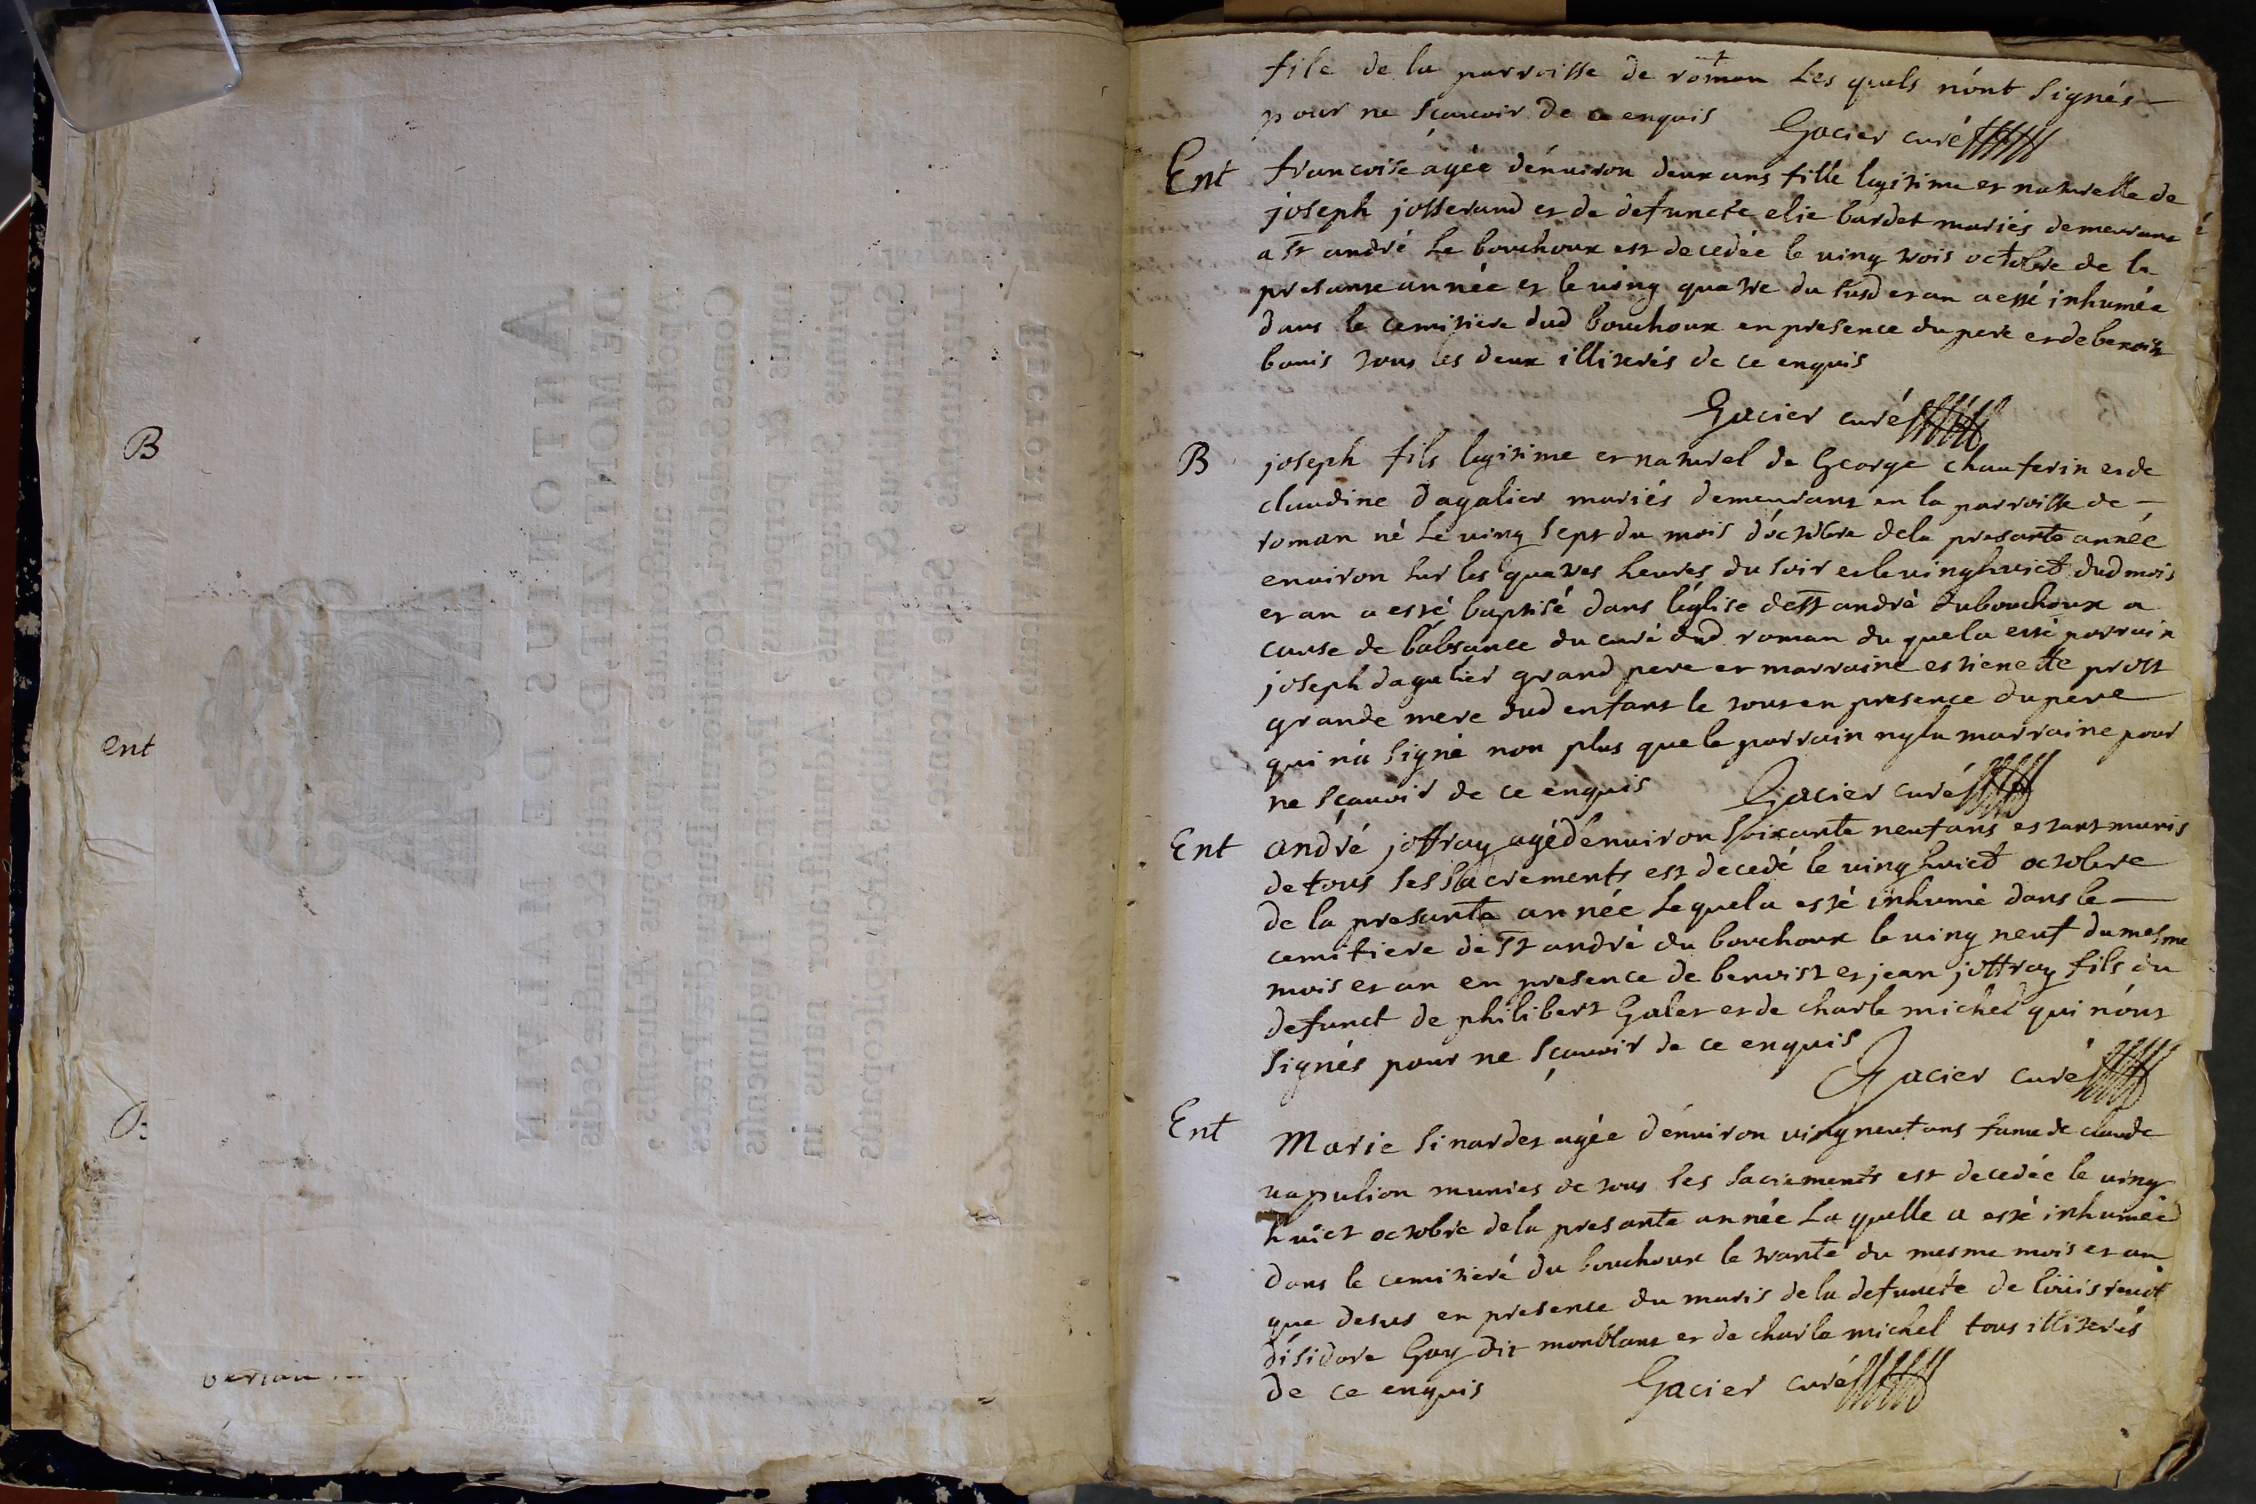 B
ent
file de la parroisse de roman Les quels n'ont signés
pour ne sçauoir de ce enquis Gacier curé
Ent francoise agée d'enuiron deux ans fille legitime et naturelle de
joseph josserand et de defuncte elie bardet mariés demeurant
a st andré Le bouchoux est decedée le uing trois octobre de la
presante année et le uing quatre du susd et an a esté inhumée
dans le cemitiere dud bouchoux en presence du pere et de benoist
bonis tous les deux illiterés de ce enquis
Gacier curé
B joseph fils legitime et naturel de George chauferin et de
claudine dagalier mariés demeurant en la parroisse de
roman né Le uing sept du mois d'octobre de la presante année
enuiron sur les quatres heures du soir et le uing huict dud mois
et an a esté baptisé dans l'église de st andré du bouchoux a
cause de l'absance du curé dud roman du quel a esté parrain
joseph dagalier grand pere et marraine estienette prost
grande mere dud enfant le tout en presence du pere
qui n'a signé non plus que le parrain ny la marraine pour
ne sçauoir de ce enquis Gacier curé
Ent andré joffray agé d'enuiron soixante neuf ans estant munis
de tous ses sacrements est decedé le uing huict octobre
de la presante année Lequel a esté inhumé dans le
cemitiere de st andré du bouchoux le uing neuf du mesme
mois et an en presence de benoist et jean joffray fils du
defunct de philibert Galet et de charle michel qui n'ont
signés pour ne sçauoir de ce enquis
Gacier curé
Ent Marie sinardet agée d'enuiron uing neuf ans fame de claude
uapulion munies de tous ses sacrements est decedée le uing
huict octobre de la presante année La quelle a esté inhumée
dans le cemitiere du bouchoux le trante du mesme mois et an
que desus en presence du maris de la defuncte de loüis
d'isidore Gay dit monblanc et de charle michel tous illiterés
de ce enquis Gacier curé